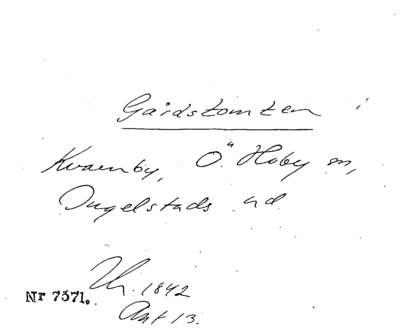 Gårdstomten i
Kvarnby, Ö. Hoby sn,
Ingelstads hd
Th. 1842
Nr 7371.
Akt 13.